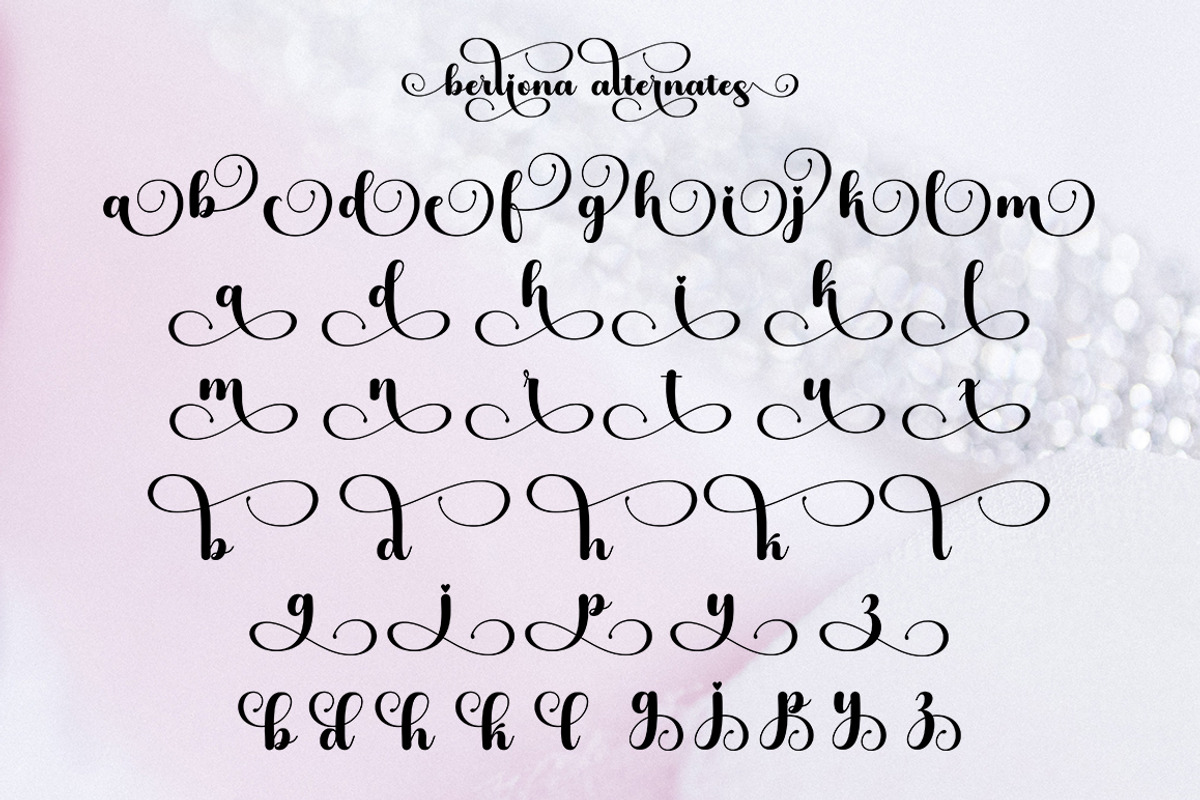 berliona alternates
a b c d e f g h i j k l m
a d h i k l
m n r t u x
b d h k l
g j p y z
b d h k l g j p y z